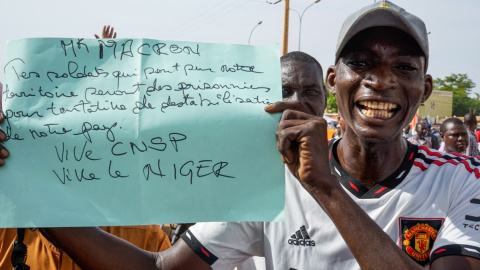 Mr MACRON
Tes soldats qui sont sur notre
territoire seront des prisonniers
pour tentative de destabilisatio
de notre pay.
VIVE CNSP
VIVE le NIGER
adidas
MANCHESTER
UNITED